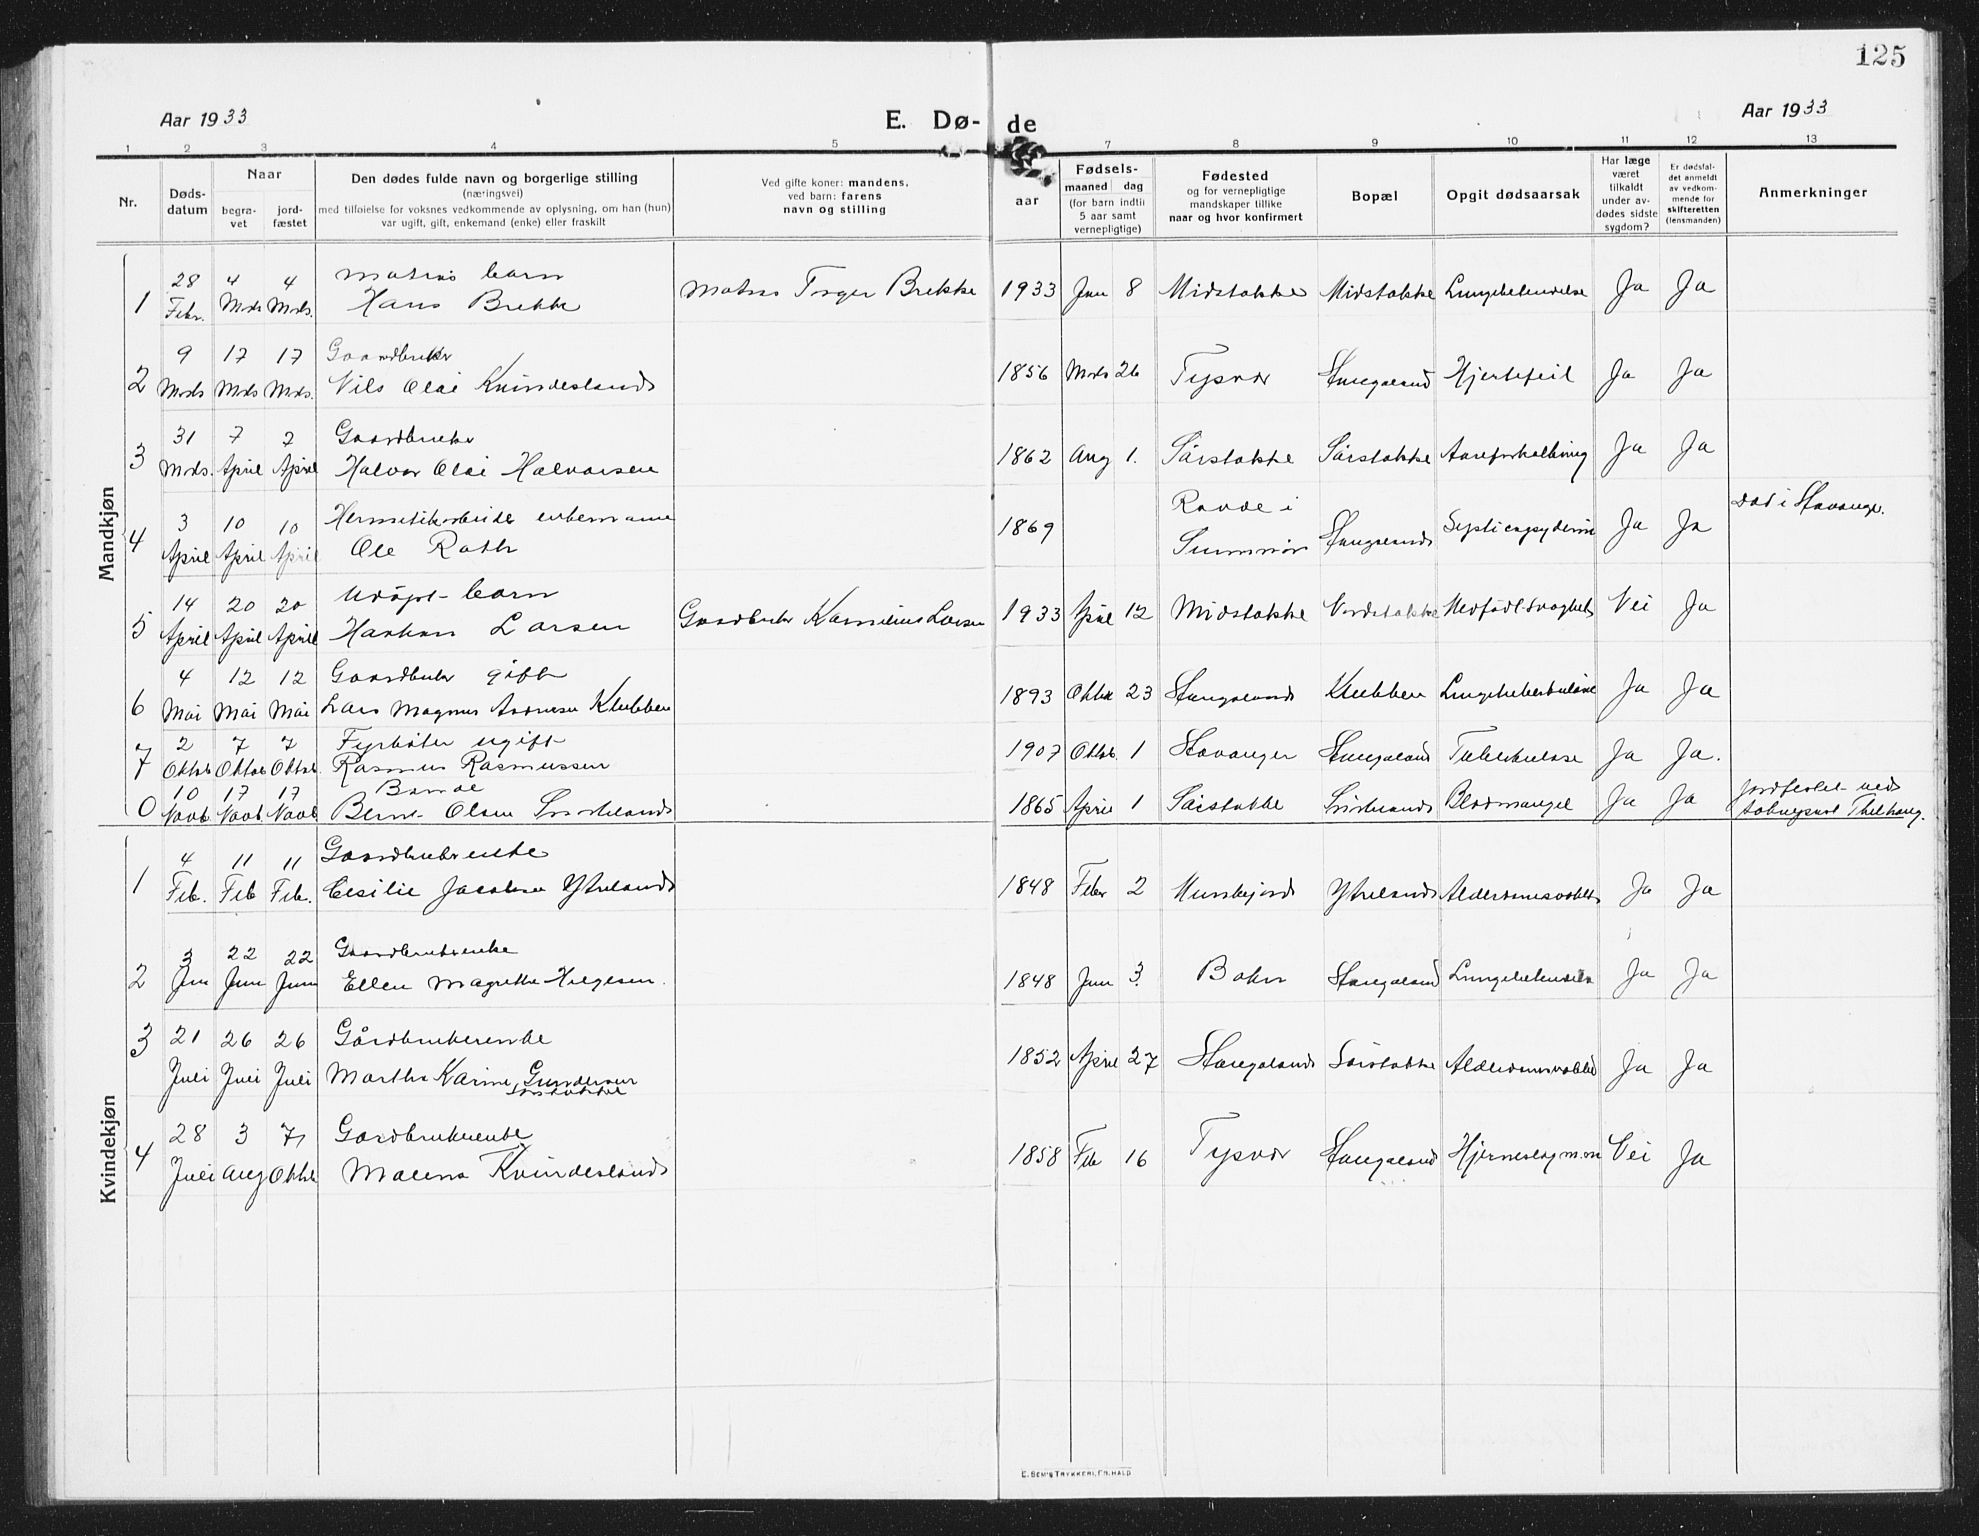 125
Aar 1933
E. Dø-
de
Aar 1933
1 2 3 4 5 7 8 9 10 11 12 13
Nr.
Døds-
datum
Naar
begra-
vet
jord-
fæstet
Den dødes fulde navn og borgerlige stilling
(næringsvei)
med tilføielse for voksnes vedkommende av oplysning, om han (hun)
var ugift, gift, enkemand (enke) eller fraskilt
Ved gifte koner: mandens,
ved barn: farens
navn og stilling
aar
Fødsels-
maaned dag
(for barn indtil
5 aar samt
vernepligtige)
Fødested
og for vernepligtige
mandskaper tillike
naar og hvor konfirmert
Bopæl
Opgit dødsaarsak
Har læge
været
tilkaldt
under av-
dødes sidste
sygdom?
Er dødsfal-
det anmeldt
av vedkom-
mende for
skifteretten
(lensmanden)
Anmerkninger
Mandkjøn
1 28 Febr. 4 Mars 4 Mars. Matros barn
Hans Brekke Matros Torger Brekke 1933 Jan 8 Midstokke Midstokke Lungebetendelse Ja Ja
2 9 Mars 17 Mars 17 Mars. Gaardbruker
Nils Olai Kvindesland 1856 Mars 26 Tysvær Stangeland Hjertefeil Ja Ja
3 31 Mars. 7 April 7 April Gaardbruker
Halvor Olai Halvorsen 1862 Aug 1. Sørstokke Sørstokke Aareforkalkning Ja Ja
4 3 April 10 April 10 April Hermetikarbeider enkemann
Ole Roth 1869 Stangeland Ja Ja Død i Stavanger.
5 14 April 20 April 20 April Udøpt barn
Haakon Larsen Gaardbruker Kornelius Larsen 1933 April 12 Midstokke Nordstokke Medfødt svaghet Nei Ja
6 4 Mai 12 Mai 12 Mai Gaardbruker gift
Lars Magnus Klubben 1893 Oktbr 23 Stangeland Klubben Lungetuberkulose Ja Ja
7 2 Oktob 7 Oktob 7 Oktob. Fyrbøter ugift
Rasmus Rasmussen 1907 Oktob. 1 Stavanger Stangeland Tuberkulose Ja Ja.
0 10 Novb 17 Novb 17 Novb Bonde
Bernt Olsen 1865 April 1 Sørstokke Blodmangel Ja Ja Jordfestet ved
Sokneprest
Kvindekjøn
1 4 Feb. 11 Feb 11 Feb. Gaardbrukerenke
Cesilie Jacobsen Ytreland 1848 Feber 2 Ytreland Alderdomssvakhet Ja Ja
2 3 Jun 22 Jun 22 Jun Gaardbrukerenke
Ellen Magrethe Helgesen. 1848 Jun 3. Bokn Stangeland Lungebetendelse Ja Ja
3 21 Juli 26 Juli 26 Juli Gårdbrukerenke
Martha Karine Gundersen
Sørstokke 1852 April 27 Stangeland Sørstokke Alderdomsvakhet Ja Ja
4 28 Juli 3 Aug 7 Oktb Gardbrukerenke
Malena Kvindesland 1858 Feb 16 Tysvær Stangeland Hjerneslag m.m Nei Ja
E. SEM'S TRYKKERI, FR.HALD